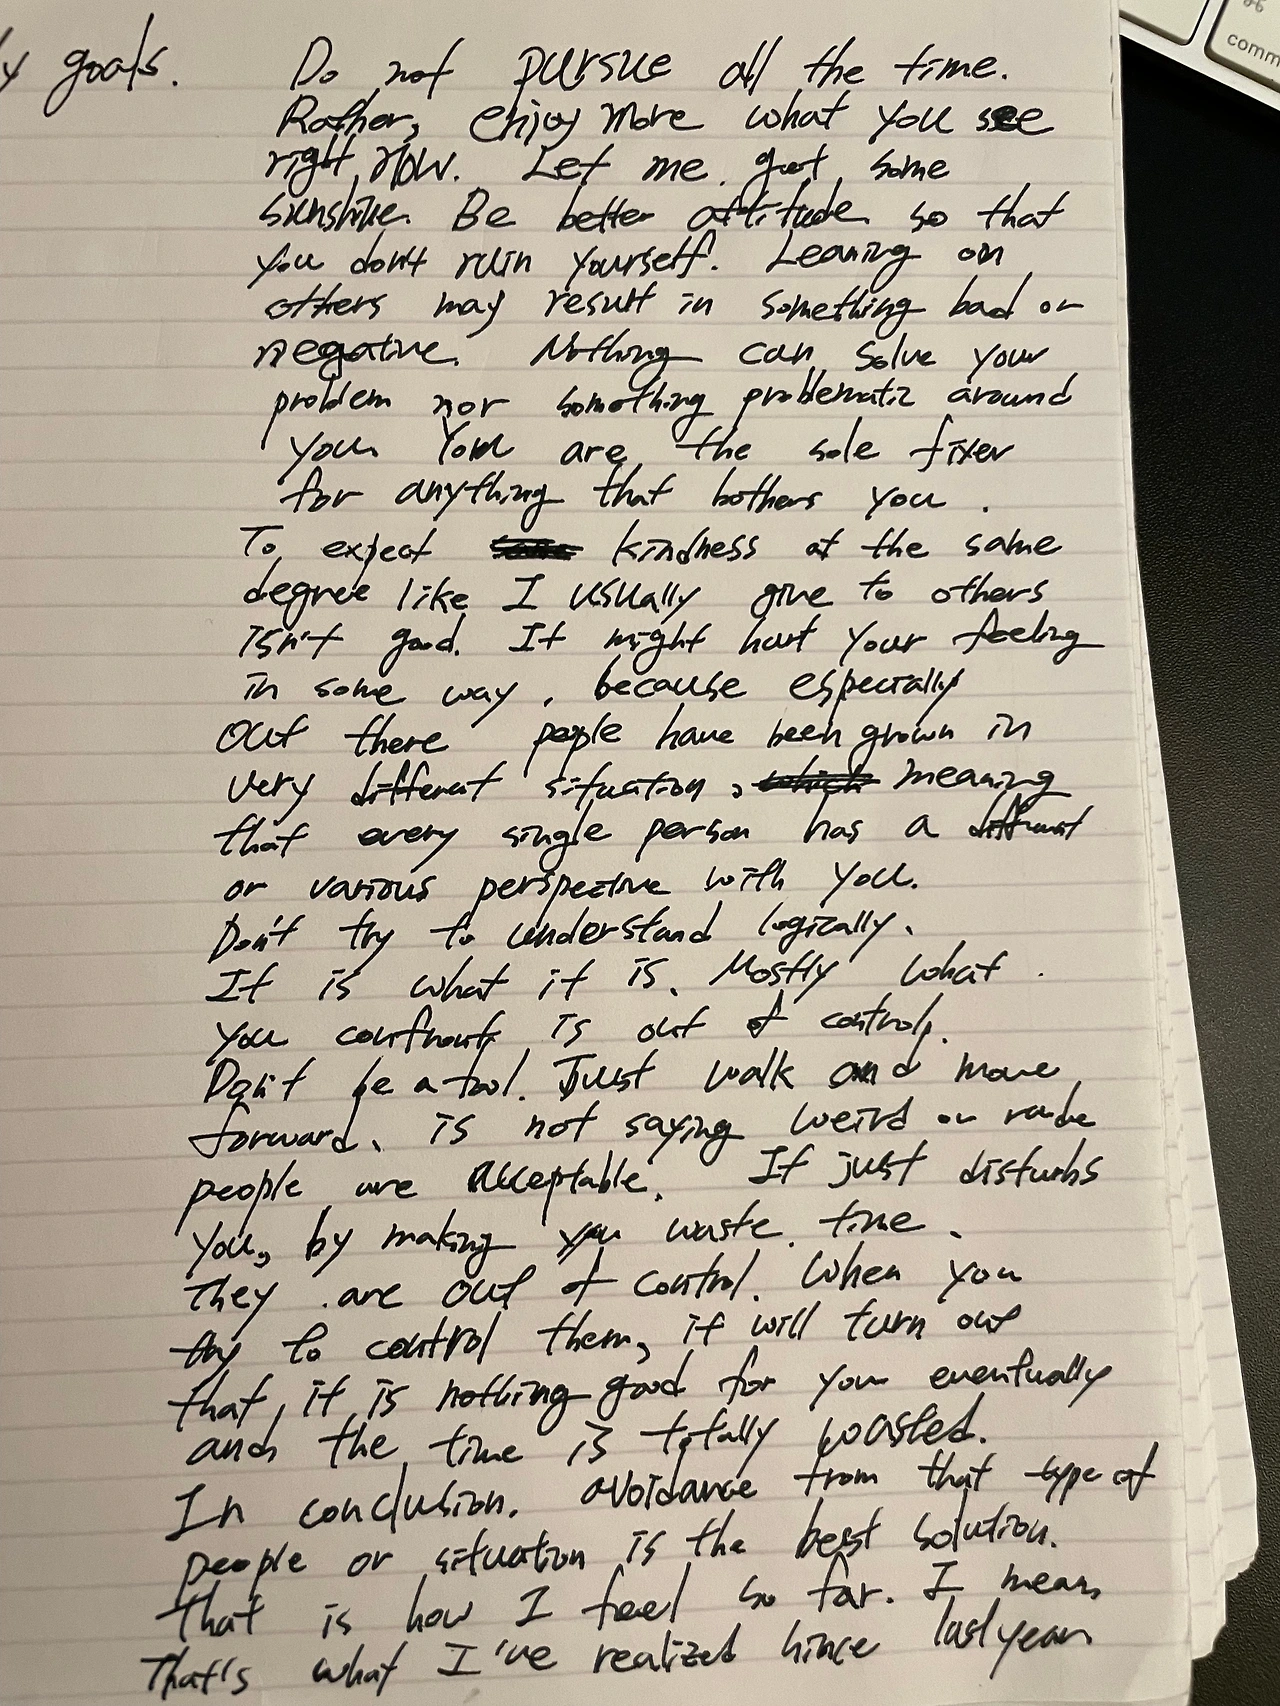 y goals. Do not pursue all the time.
Rather, enjoy more what you see
right now. Let me get some
sunshine. Be better attitude so that
you don't ruin yourself. Leaning on
others may result in something bad or
negative. Nothing can solve your
problem nor something problematic around
you. You are the sole fixer
for anything that bothers you.
To expect kindness at the same
degree like I usually give to others
isn't good. It might hurt your feeling
in some way, because especially
out there people have been grown in
very different situation, meaning
that every single person has a different
or various perspective with you.
Don't try to understand logically.
It is what it is. Mostly what
you confront is out of control.
Don't be a fool. Just walk and move
forward. is not saying weird or rude
people are acceptable. It just disturbs
you, by making you waste time.
They are out of control. When you
try to control them, it will turn out
that it is nothing good for you eventually
and the time is totally wasted.
In conclusion. avoidance from that type of
people or situation is the best solution.
That is how I feel so far. I mean
That's what I've realized hince last year
comm